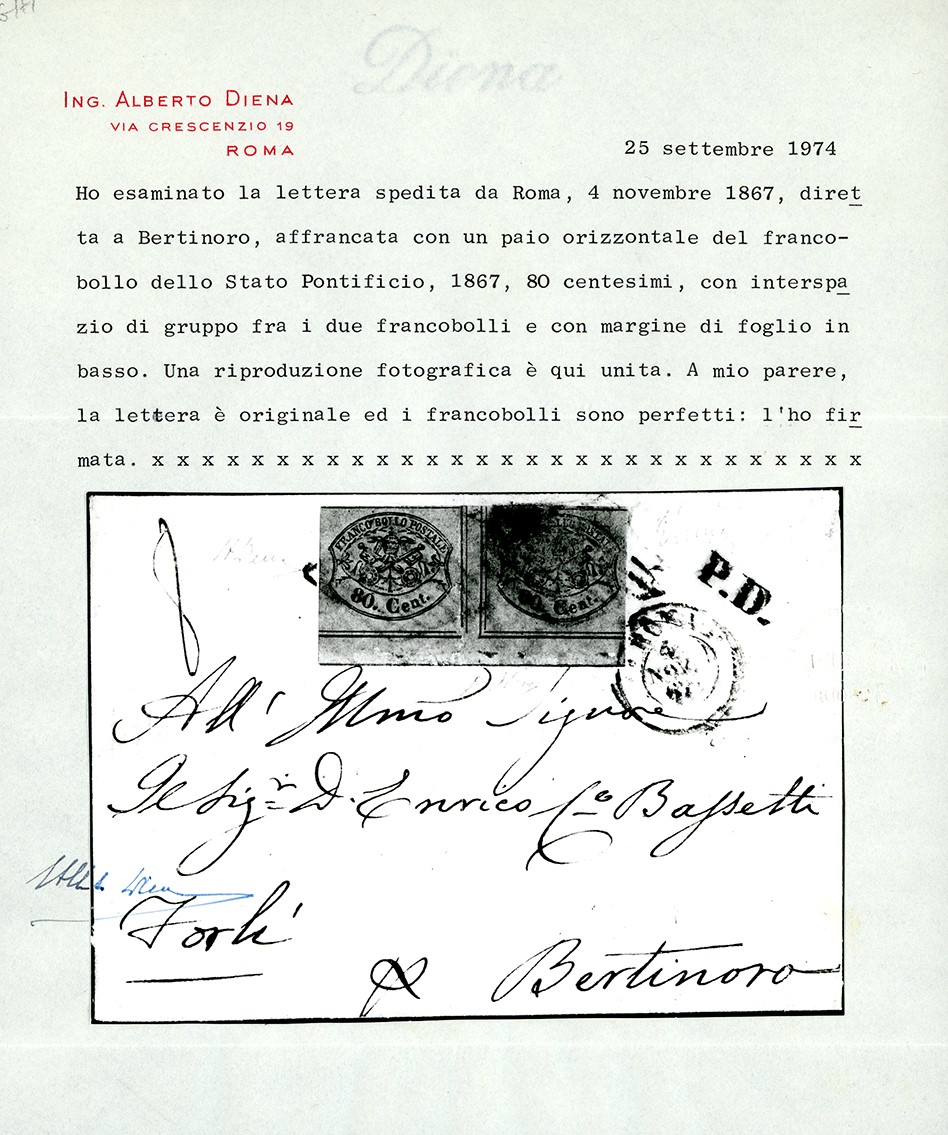 Diena
ING. ALBERTO DIENA
VIA CRESCENZIO 19
ROMA
25 settembre 1974
Ho esaminato la lettera spedita da Roma, 4 novembre 1867, diret
ta a Bertinoro, affrancata con un paio orizzontale del franco-
bollo dello Stato Pontificio, 1867, 80 centesimi, con interspa
zio di gruppo fra i due francobolli e con margine di foglio in
basso. Una riproduzione fotografica è qui unita. A mio parere,
la lettera è originale ed i francobolli sono perfetti: l'ho fir
mata. x x x x x x x x x x x x x x x x x x x x x x x x x x x x x
FRANCO BOLLO POSTALE
80. Cent.
80. Cent.
P.D.
All' Illmo Signore
Il Sigr. D. Enrico Co Bassetti
Forlì
Bertinoro